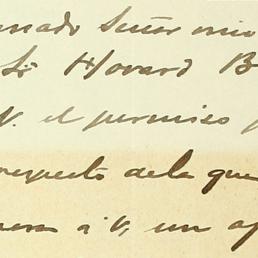 nado Señor mio
Sr Howard B
V. el permiso p
respecto dela que
a V, un ap